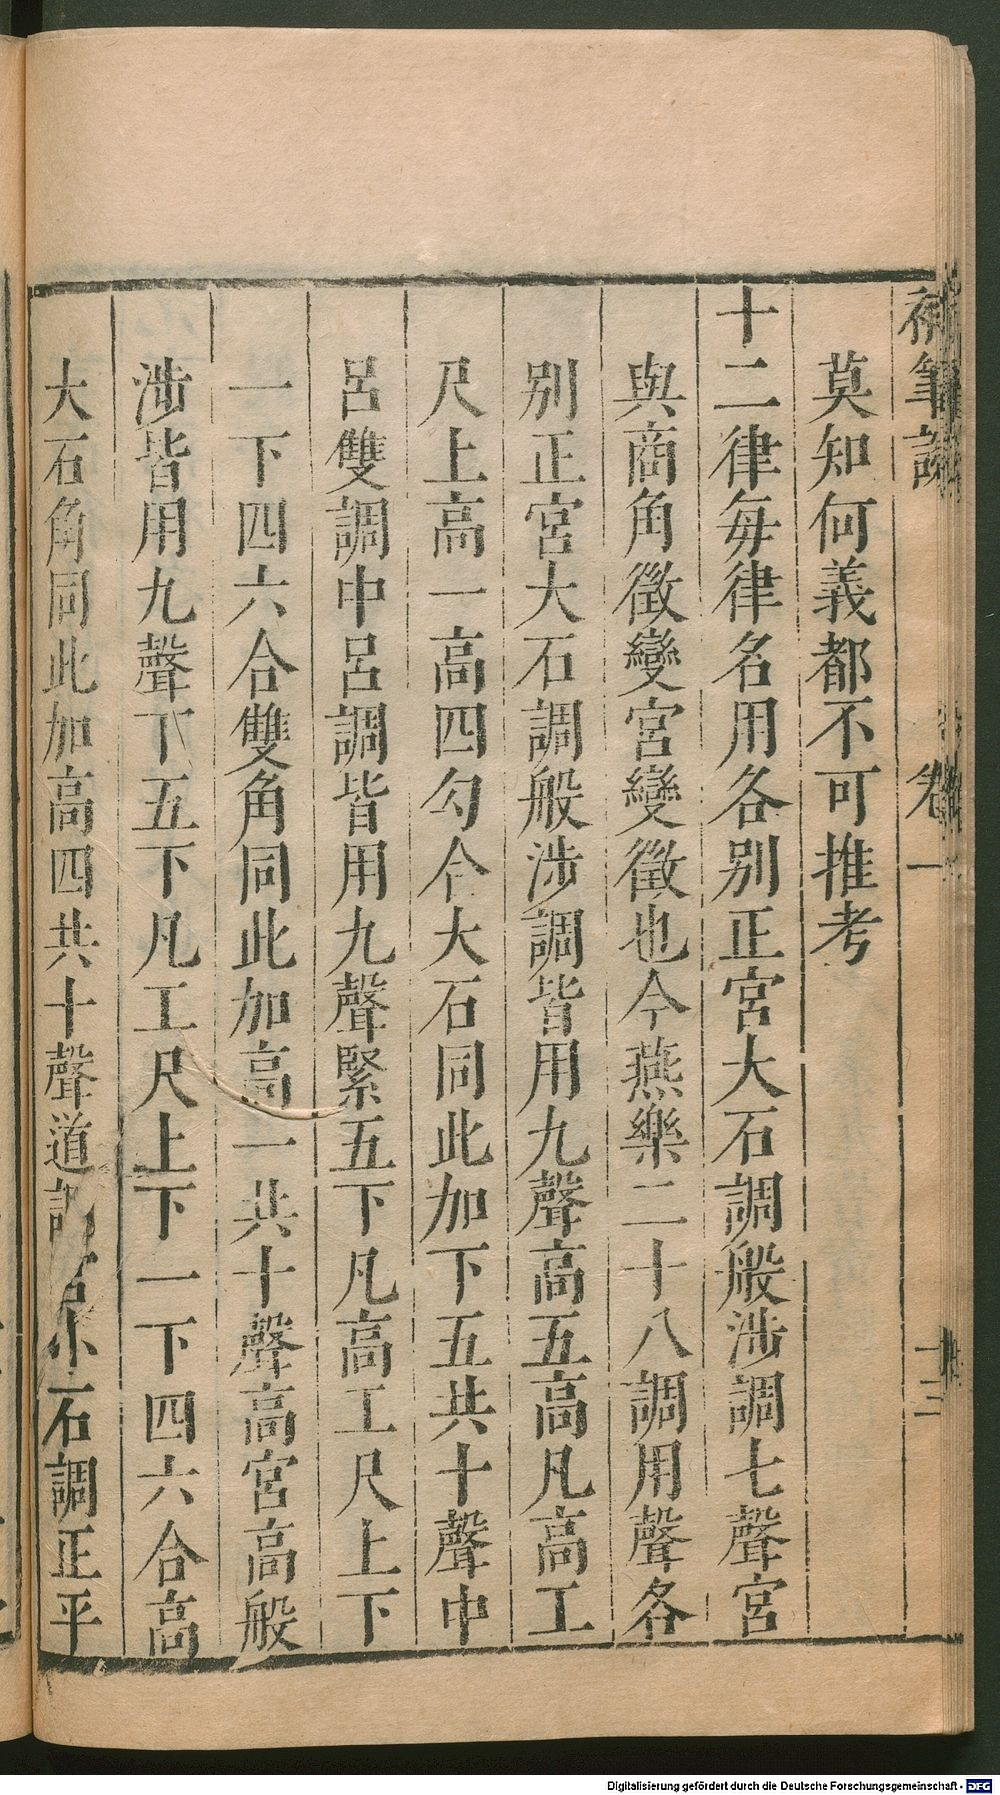 補筆談
卷一
十三
莫知何義都不可推考
十二律每律名用各别正宫大石調般涉調七聲宫
與商角徵變宫變徵也今燕樂二十八調用聲各
别正宫大石調般涉調皆用九聲高五高凡高工
尺上高一高四勾合大石同此加下五共十聲中
呂雙調中呂調皆用九聲緊五下凡高工尺上下
一下四六合雙角同此加高一共十聲高宫高般
涉皆用九聲下五下凡工尺上下一下四六合高
大石角同此加高四共十聲道調宫小石調正平
Digitalisierung gefördert durch die Deutsche Forschungsgemeinschaft - DFG